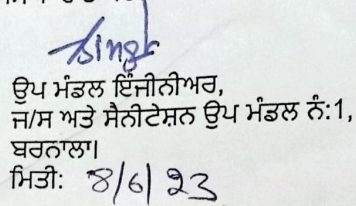 Singh
ਉਪ ਮੰਡਲ ਇੰਜੀਨੀਅਰ,
ਜ/ਸ ਅਤੇ ਸੈਨੀਟੇਸ਼ਨ ਉਪ ਮੰਡਲ ਨੰ:1,
ਬਰਨਾਲਾ।
ਮਿਤੀ: 8/6/23